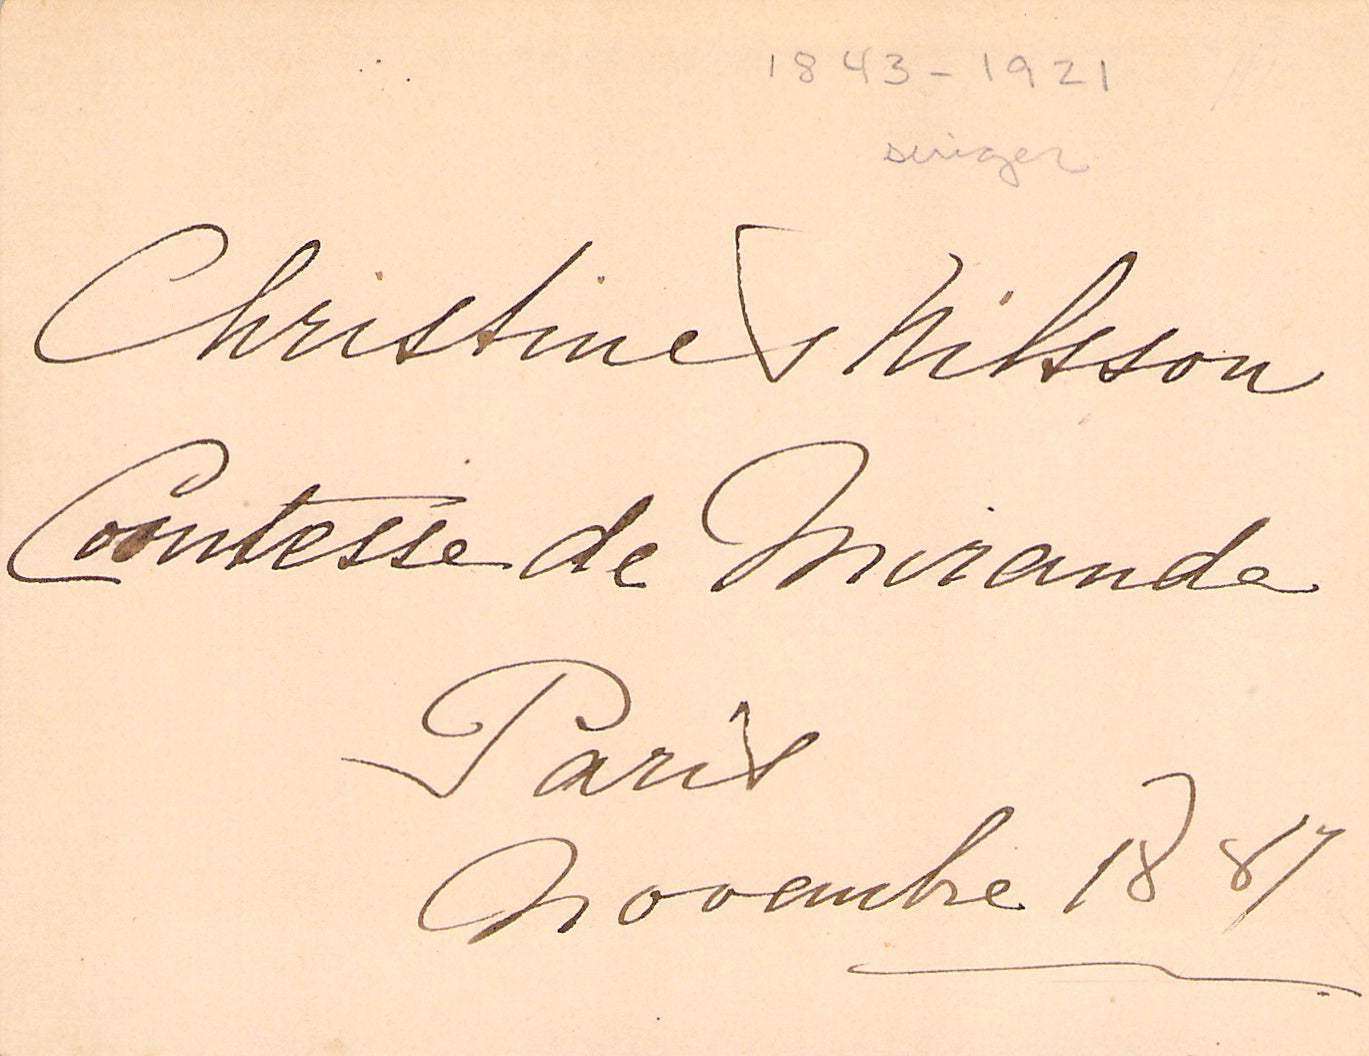 1843-1921
singer
Christine Nilsson
Comtesse de Miranda
Paris
Novembre 1887